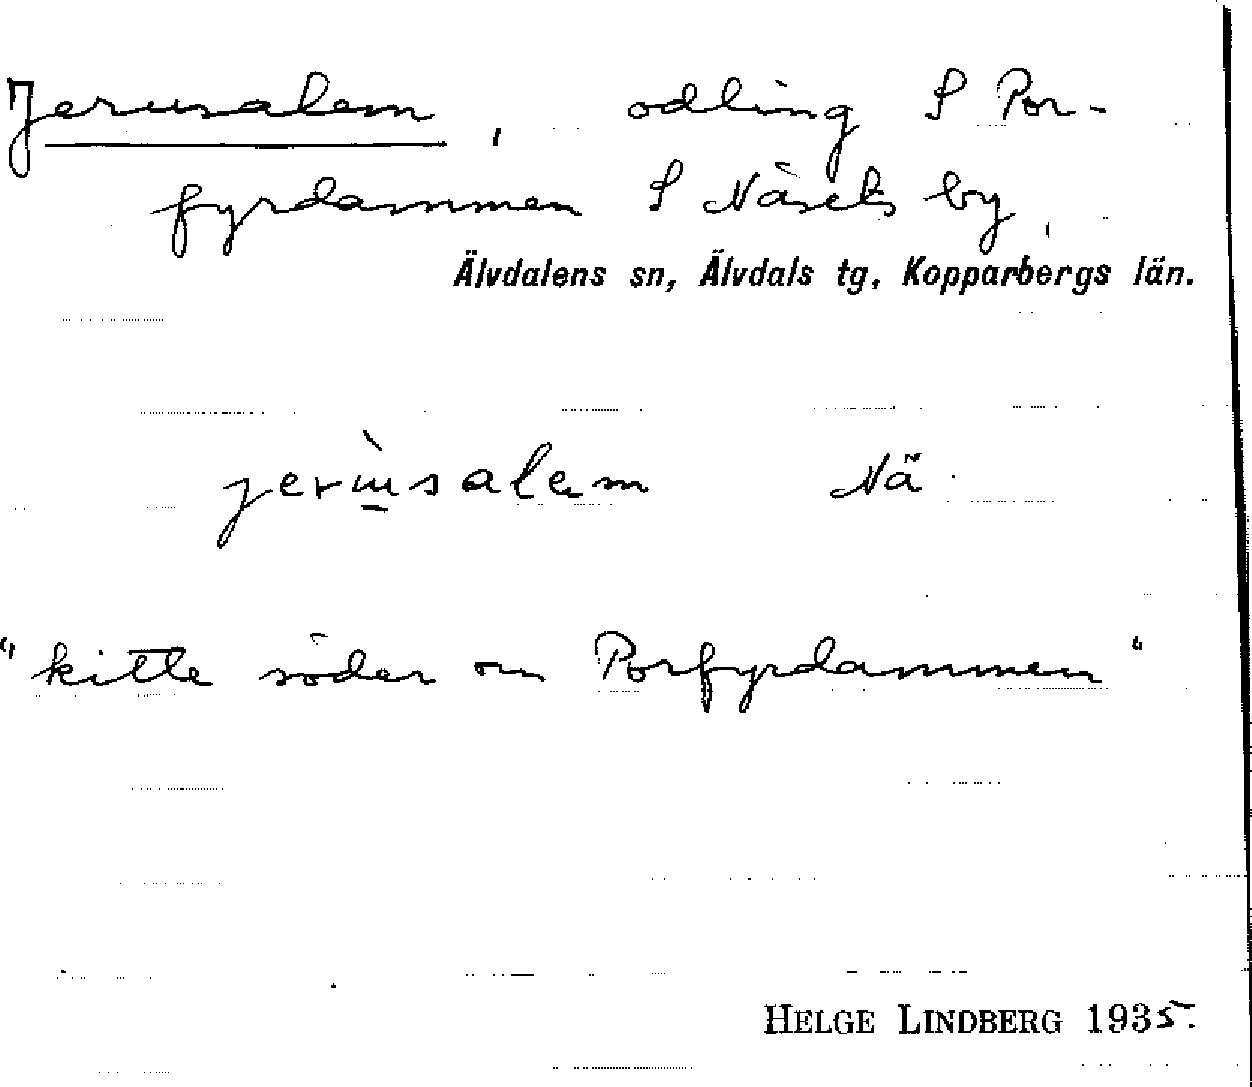 Jerusalem, odling S Por-
fyrdammen S Näsets by,
Älvdalens sn, Älvdals tg, Kopparbergs län.
jerùsalem Nä.
"kitte söder om Porfyrdammen"
HELGE LINDBERG 1935.